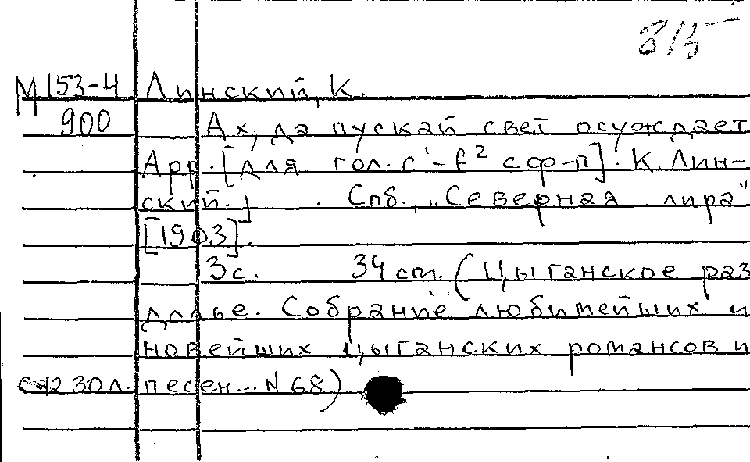 8/15
М 153-4 Линский, К.
900 Ах, да пускай свет осуждает
Арр. [для гол. c'-f² с ф-п]. К. Лин-
ский.] . Спб. „Северная лира"
[1903].
3с. 34 cm. (Цыганское раз
долье. Собрание любимейших и
новейших цыганских романсов и
песен... N 68)